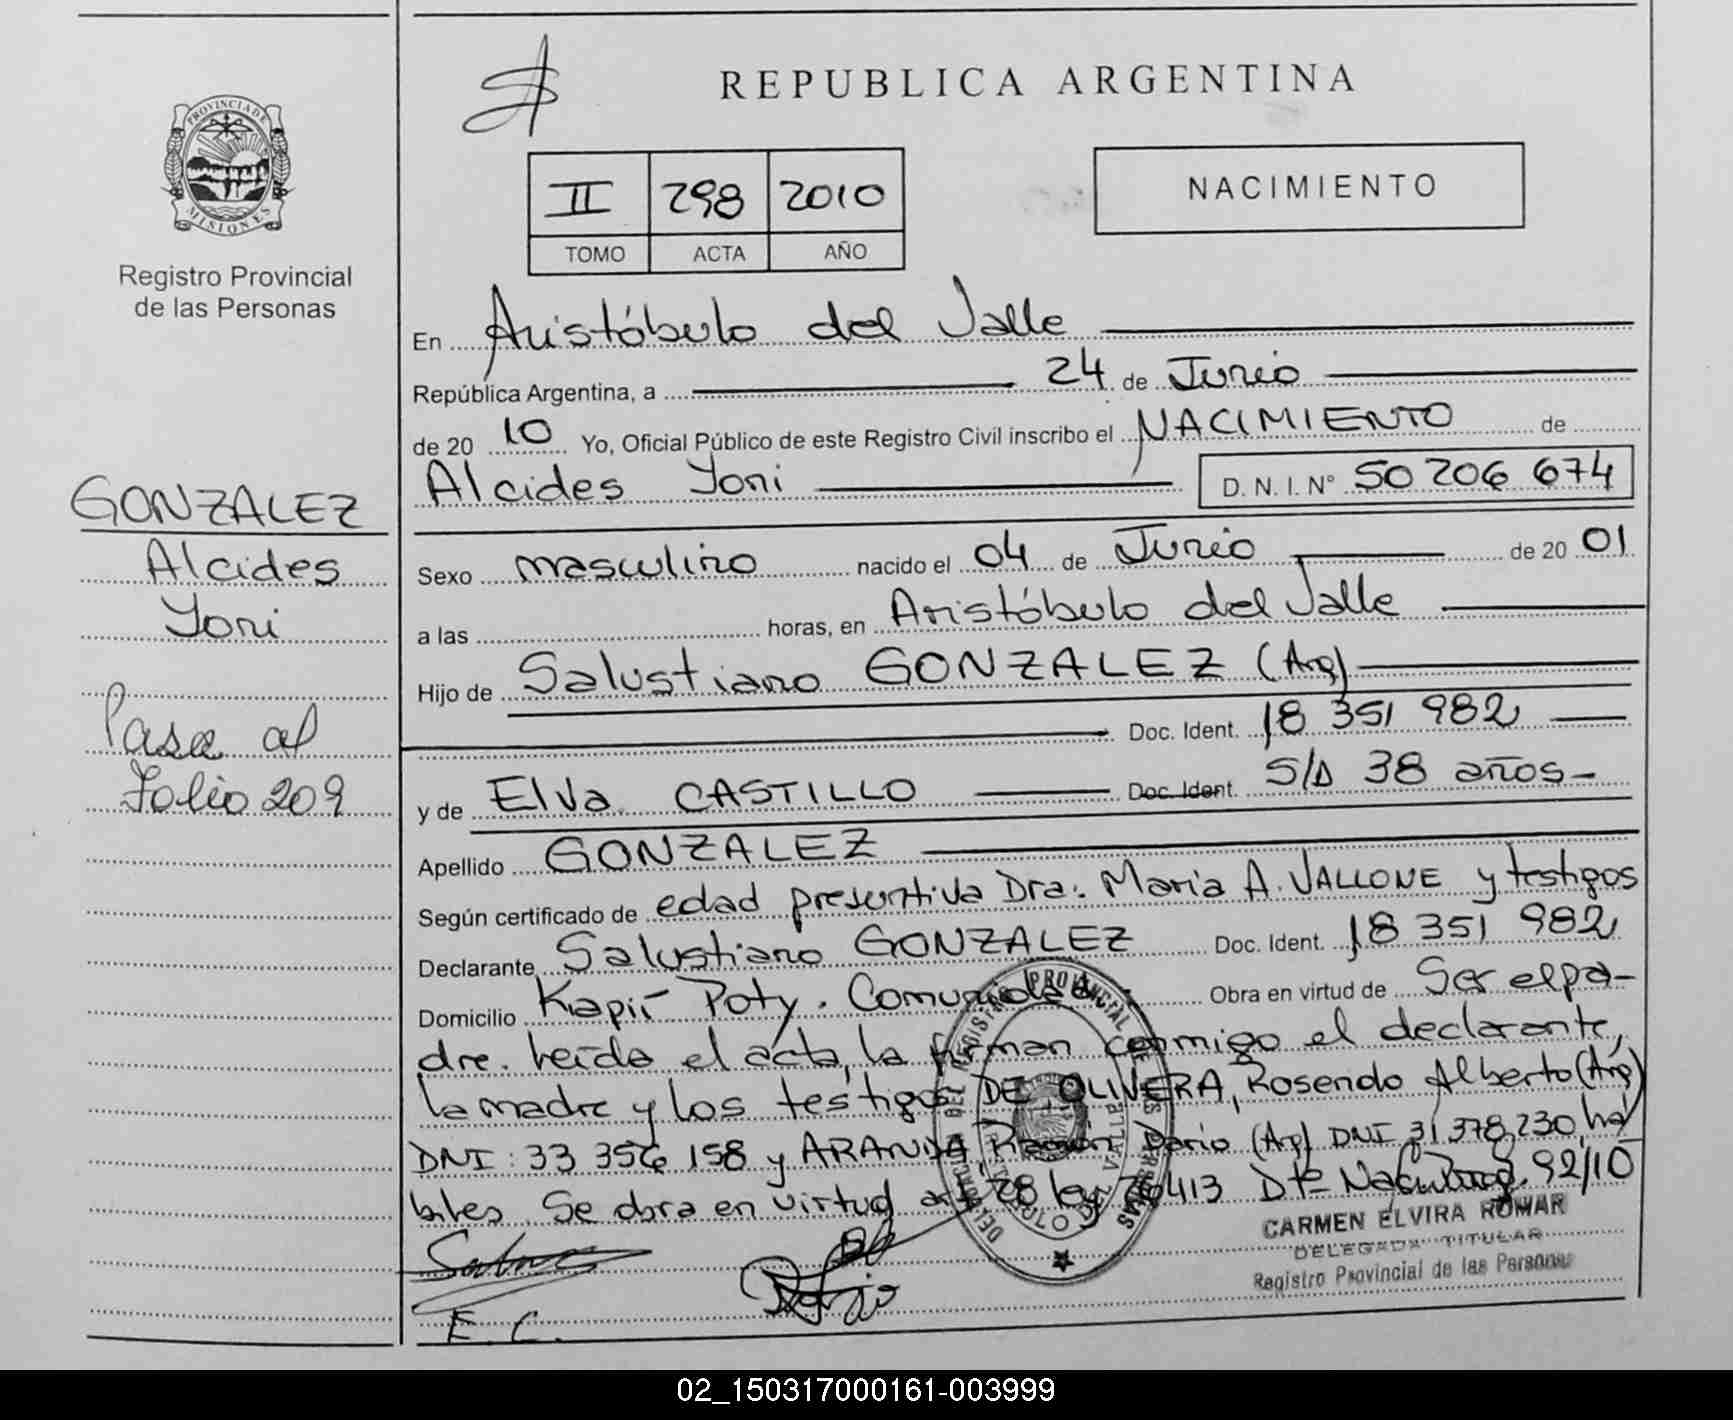 REPUBLICA ARGENTINA
PROVINCIA DE
MISIONES
Registro Provincial
de las Personas
II 298 2010
TOMO ACTA AÑO
NACIMIENTO
GONZALEZ
Alcides
Yoni
Pase al
Folio 209
En Aristóbulo del Valle
República Argentina, a 24 de Junio
de 20 10 Yo, Oficial Público de este Registro Civil inscribo el NACIMIENTO de
Alcides Yoni D. N. I. N° 50 206 674
Sexo masculino nacido el 04 de Junio de 20 01
a las horas, en Aristóbulo del Valle
Hijo de Salustiano GONZALEZ (Arg)
Doc. Ident. 18 351 982
y de Elva CASTILLO Doc. Ident. S/D 38 años
Apellido GONZALEZ
Según certificado de edad presuntiva Dra. Maria A. VALLONE y testigos
Declarante Salustiano GONZALEZ Doc. Ident. 18 351 982
Domicilio Kapií Poty. Comunidad Obra en virtud de Ser el pa-
dre. Leída el acta, la firman conmigo el declarante,
la madre y los testigos DE OLIVERA, Rosendo Alberto (Arg)
DNI: 33 356 158 y ARANDA, Ramón Dario (Arg) DNI 31 378 230 há
biles. Se obra en virtud art 28 ley 26413 Dto Nac. 92/10
CARMEN ELVIRA ROMAR
DELEGADA TITULAR
Registro Provincial de las Personas
E. C.
02_150317000161-003999